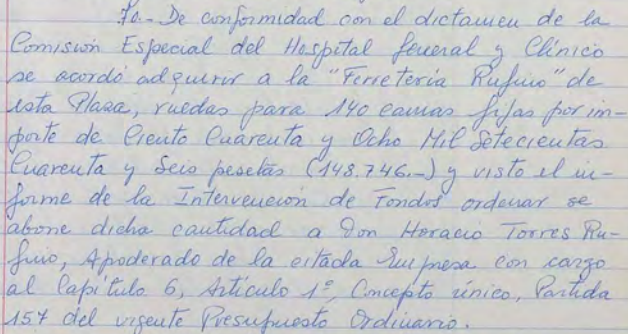 70.- De conformidad con el dictamen de la
Comisión Especial del Hospital General y Clínico
se acordó adquirir a la "Ferretería Rufino" de
esta Plaza, ruedas para 140 camas fijas por im-
porte de Ciento Cuarenta y Ocho Mil Setecientas
Cuarenta y Seis pesetas (148.746.-) y visto el in-
forme de la Intervención de Fondos ordenar se
abone dicha cantidad a Don Horacio Torres Ru-
fino, Apoderado de la citada Empresa con cargo
al Capítulo 6, Artículo 1º, Concepto único, Partida
157 del vigente Presupuesto Ordinario.